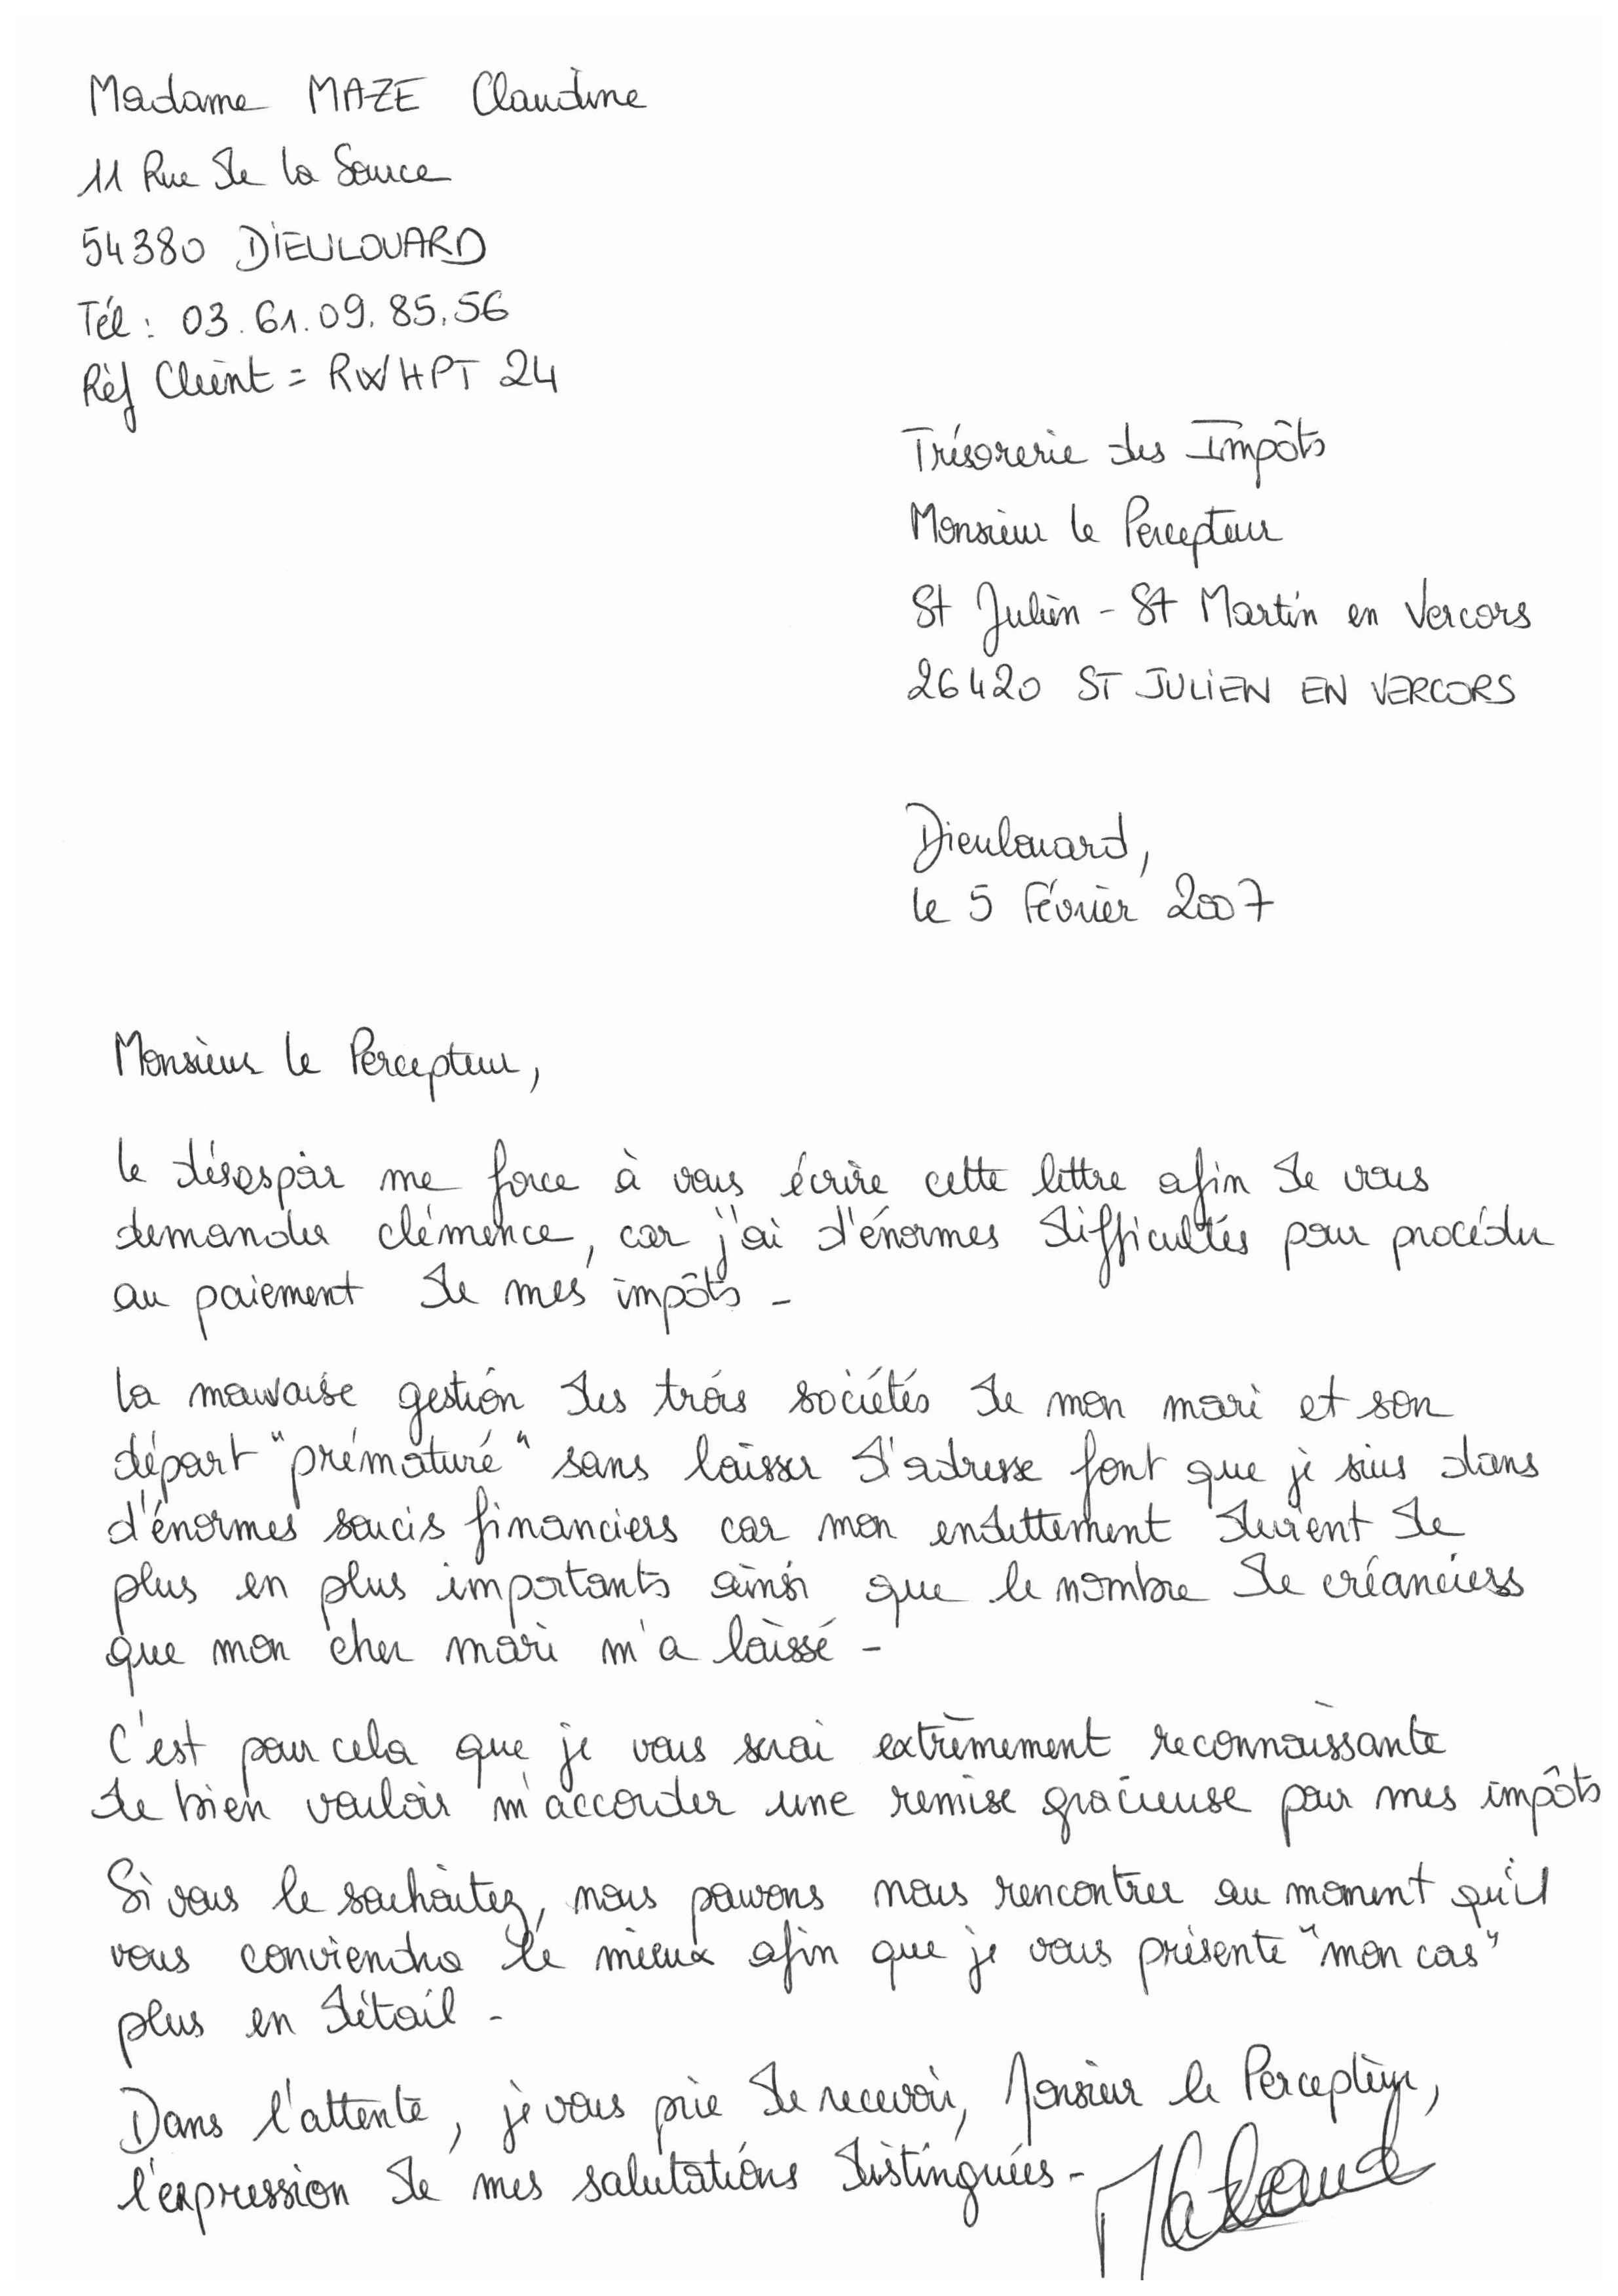 Madame MAZE Claudine
11 Rue de la Source
54380 DIEULOUARD
Tél : 03.61.09.85.56
Réf Client = RWHPT 24
Trésorerie des Impôts
Monsieur le Percepteur
St Julien - St Martin en Vercors
26420 ST JULIEN EN VERCORS
Dieulouard,
le 5 Février 2007
Monsieur le Percepteur,
le désespoir me force à vous écrire cette lettre afin de vous
demander clémence, car j'ai d'énormes difficultés pour procéder
au paiement de mes impôts -
la mauvaise gestion des trois sociétés de mon mari et son
départ "prématuré" sans laisser d'adresse font que je suis dans
d'énormes soucis financiers car mon endettement devient de
plus en plus importants ainsi que le nombre de créanciers
que mon cher mari m'a laissé -
C'est pour cela que je vous serai extrêmement reconnaissante
de bien vouloir m'accorder une remise gracieuse pour mes impôts
Si vous le souhaitez, nous pouvons nous rencontrer au moment qu'il
vous conviendra le mieux afin que je vous présente "mon cas"
plus en détail -
Dans l'attente, je vous prie de recevoir, Monsieur le Percepteur,
l'expression de mes salutations distinguées -